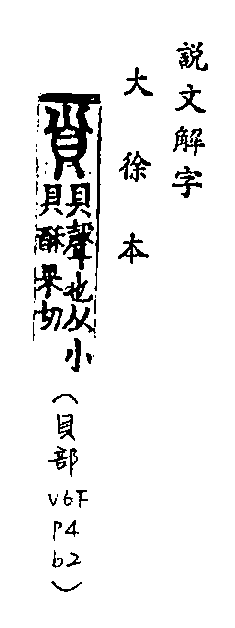 説文解字
大徐本
𧴪
貝聲也从小
貝酥果切
(貝部
V6F
P4
b2)